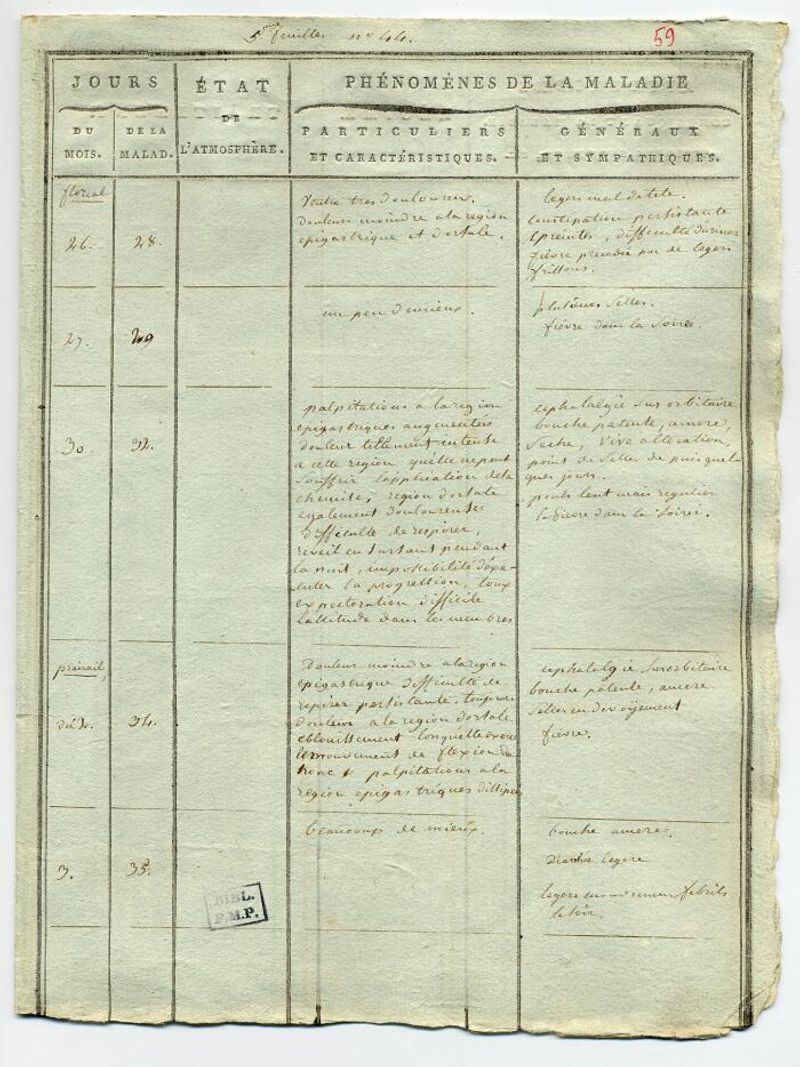 5e feuille. n° 44.
59
JOURS
DU MOIS.
DE LA MALAD.
ÉTAT
DE
L'ATMOSPHÈRE.
PHÉNOMÈNES DE LA MALADIE
PARTICULIERS
ET CARACTÉRISTIQUES.
GÉNÉRAUX
ET SYMPATHIQUES.
floreal
26.
28.
Ventre tres douloureux.
douleur moindre a la region
epigastrique et dorsale.
legers mal de tete.
Constipation persistante
Epreintes, difficulté
fievre precedée par de legers
frissons.
27.
29
un peu d mieux.
plusieurs selles.
fievre dans la soirée.
30.
32.
palpitations a la region
epigastriques augmentées
douleur tellement intense
a cette region quelle ne peut
souffrir l'application de la
chemise, region dorsale
egalement douloureuse
difficulté de respirer,
reveil en sursaut pendant
la nuit, impossibilité dexe-
cuter la progression, toux
expectoration difficile
lassitude dans les membres
cephalalgie sus orbitaire
bouche patente, amere,
seche, vive alteration,
point de selles de puis quel-
ques jours.
pouls lent mais regulier
la fievre dans la soirée.
prairial
34.
Douleur moindre a la region
epigastrique difficulté de
repirer persistante. toujours
douleur a la region dorsale
eblouissement lorsquelle
le mouvement de flexion du
tronc & palpitations a la
region epigastriques dissipées
cephalalgie susorbitaire
bouche patente, amere
selles en devoyement
fievre.
3.
35.
beaucoup de mieux.
bouche amere.
Diarrhée legere
legers mouvemens febrils
le soir.
BIBL.
F.M.P.